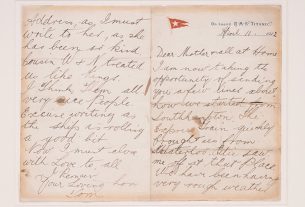 Address, as I must
write to her, as she
has been so kind
Cousin W & N treated
us like kings.
I think am all
very nice people.
Excuse writing as
the ship is rolling
a good bit.
Now I must close
with Love to all
I remain
Your Loving Son
Tom
On board R.M.S. "Titanic".
April 11 1912
Dear Mother all at Home
I am now taking the
opportunity of sending
you a few lines about
how we started from
Southampton. The
Express Train quickly
brought us from
Waterloo. saw
me of at that Place
We have been having
very rough weather